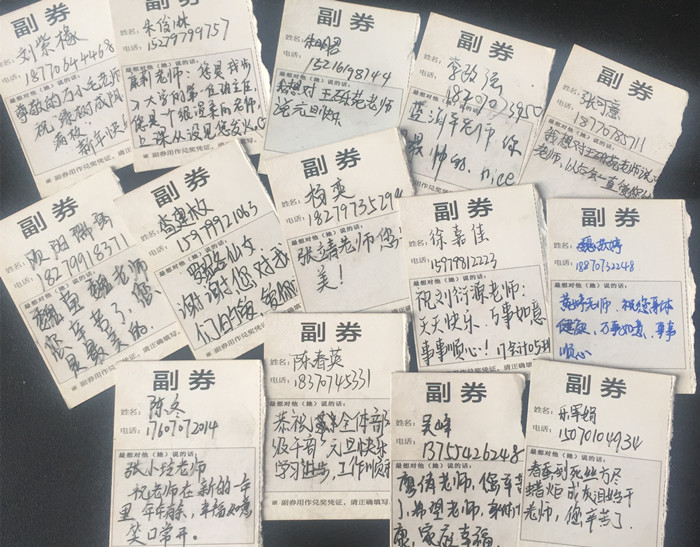 副券
姓名：刘紫椽
电话：18770644468
最想对他（她）说的话：
尊敬的万小毛老师
祝
新年快
副券
姓名：朱俊琳
电话：15279799757
最想对他（她）说的话：
老师：您是我步
入大学的第一位班主任
您是一个很温柔的老师，
上课从没见您发火
※ 副券用作兑奖凭证，请
副券
姓名：
电话：15216198144
最想对他（她）说的话：
我想对王
老师
说元旦快乐
副券
姓名：
电话：
最想对他（她）说的话：
老师 你
最帅的. nice
副券
姓名：张可意
电话：18770785711
最想对他（她）说的话：
我想对王
老师说
老师，以后会一直
副券
姓名：欧阳
电话：18279918371
最想对他（她）说的话：
魏老师
您辛苦了，您
是最美的.
副券用作兑奖凭证，请正确填写.
副券
姓名：
电话：15979921063
最想对他（她）说的话：
仙女，
谢谢您对我
们的
※ 副券用作兑奖凭证，请
副券
姓名：杨奕
电话：18279735294
最想对他（她）说的话：
张靖老师您
美！
副券
姓名：徐嘉佳
电话：15979312223
最想对他（她）说的话：
祝刘衍源老师：
天天快乐、万事如意
事事顺心！17会计0531
※ 副券用作兑奖凭证，请正确填写.
副券
姓名：魏
婷
电话：18870732248
最想对他（她）说的话：
黄婷老师，祝您身体
健康，万事如意，事事
顺心
※ 副券用作兑奖凭证，请正确填写.
副券
姓名：陈冬
电话：17607072014
最想对他（她）说的话：
张小培老师
祝老师在新的一年
里 年年有余，幸福如意
笑口常开.
副券
姓名：陈春英
电话：18370745331
最想对他（她）说的话：
恭祝
全体
元旦快乐
学习进步，工作顺
※ 副券用作兑奖凭证，请正确填写
副券
姓名：吴峰
电话：13755426248
最想对他（她）说的话：
廖倩老师，您辛苦
了，希望老师
康，家庭幸福.
副券
姓名：
军娟
电话：15070104934
最想对他（她）说的话：
春蚕到死丝方尽
蜡炬成灰泪始干
老师，您辛苦了.